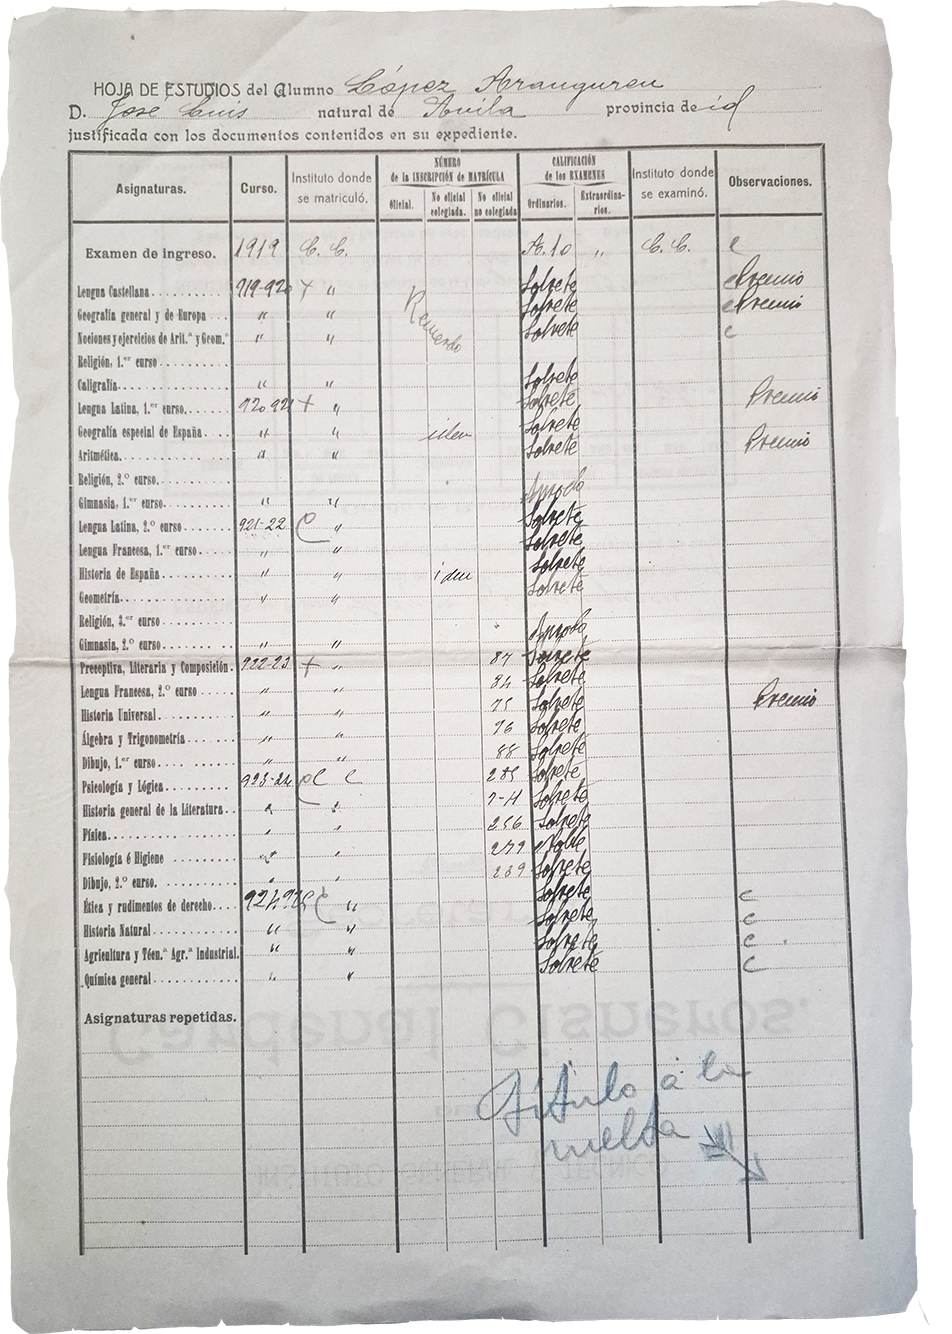 HOJA DE ESTUDIOS del Alumno López Aranguren
D. José Luis natural de Avila provincia de id
justificada con los documentos contenidos en su expediente.
Asignaturas. Curso. Instituto donde se matriculó. NÚMERO de la INSCRIPCIÓN DE MATRÍCULA CALIFICACIÓN de los EXÁMENES Instituto donde se examinó. Observaciones.
Oficial. No oficial colegiada. No oficial no colegiada Ordinarios. Extraordinarios.
Examen de ingreso. 1919 C. C. A. 10 " C. C.
Lengua Castellana 919-920 + " Sobrete Premio
Geografía general y de Europa " " Sobrete Premio
Nociones y ejercicios de Arit.ª y Geom.ª " " Sobrete
Religión, 1.er curso
Caligrafía " " Sobrete
Lengua Latina, 1.er curso. 920 921 + " Sobrete Premio
Geografía especial de España " " Sobrete
Aritmética. " " Sobrete Premio
Religión, 2.º curso
Gimnasia, 1.er curso " " Aprobo
Lengua Latina, 2.º curso 921-22 " Sobrete
Lengua Francesa, 1.er curso. " " Sobrete
Historia de España " " idem Sobrete
Geometría " " Sobrete
Religión, 3.er curso
Gimnasia, 2.º curso " " Aprobo
Preceptiva, Literaria y Composición. 922-23 + " 87 Sobrete
Lengua Francesa, 2.º curso " " 84 Sobrete
Historia Universal " " 75 Sobrete Premio
Álgebra y Trigonometría " " 76 Sobrete
Dibujo, 1.er curso " " 88 Sobrete
Psicología y Lógica 923-24 Sobrete
Historia general de la Literatura " " Sobrete
Física " " 256 Sobrete
Fisiología é Higiene " " 279 Noble
Dibujo, 2.º curso. " " 289 Sobrete
Ética y rudimentos de derecho " Sobrete
Historia Natural " " Sobrete
Agricultura y Técn.ª Agr.ª Industrial. " " Sobrete
Química general " " Sobrete
Asignaturas repetidas.
Título a la
vuelta